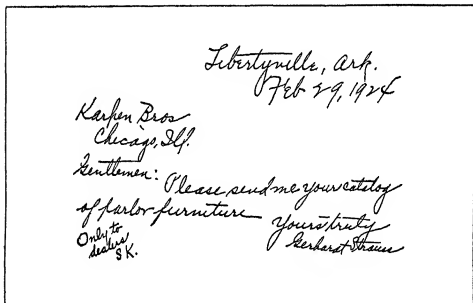 Libertyville, Ark.
Feb 29, 1924
Karpen Bros
Chicago, Ill.
Gentlemen:
Please send me your catalog
of parlor furniture
Yours truly
Gerhardt Strauss
Only to
dealers
S.K.